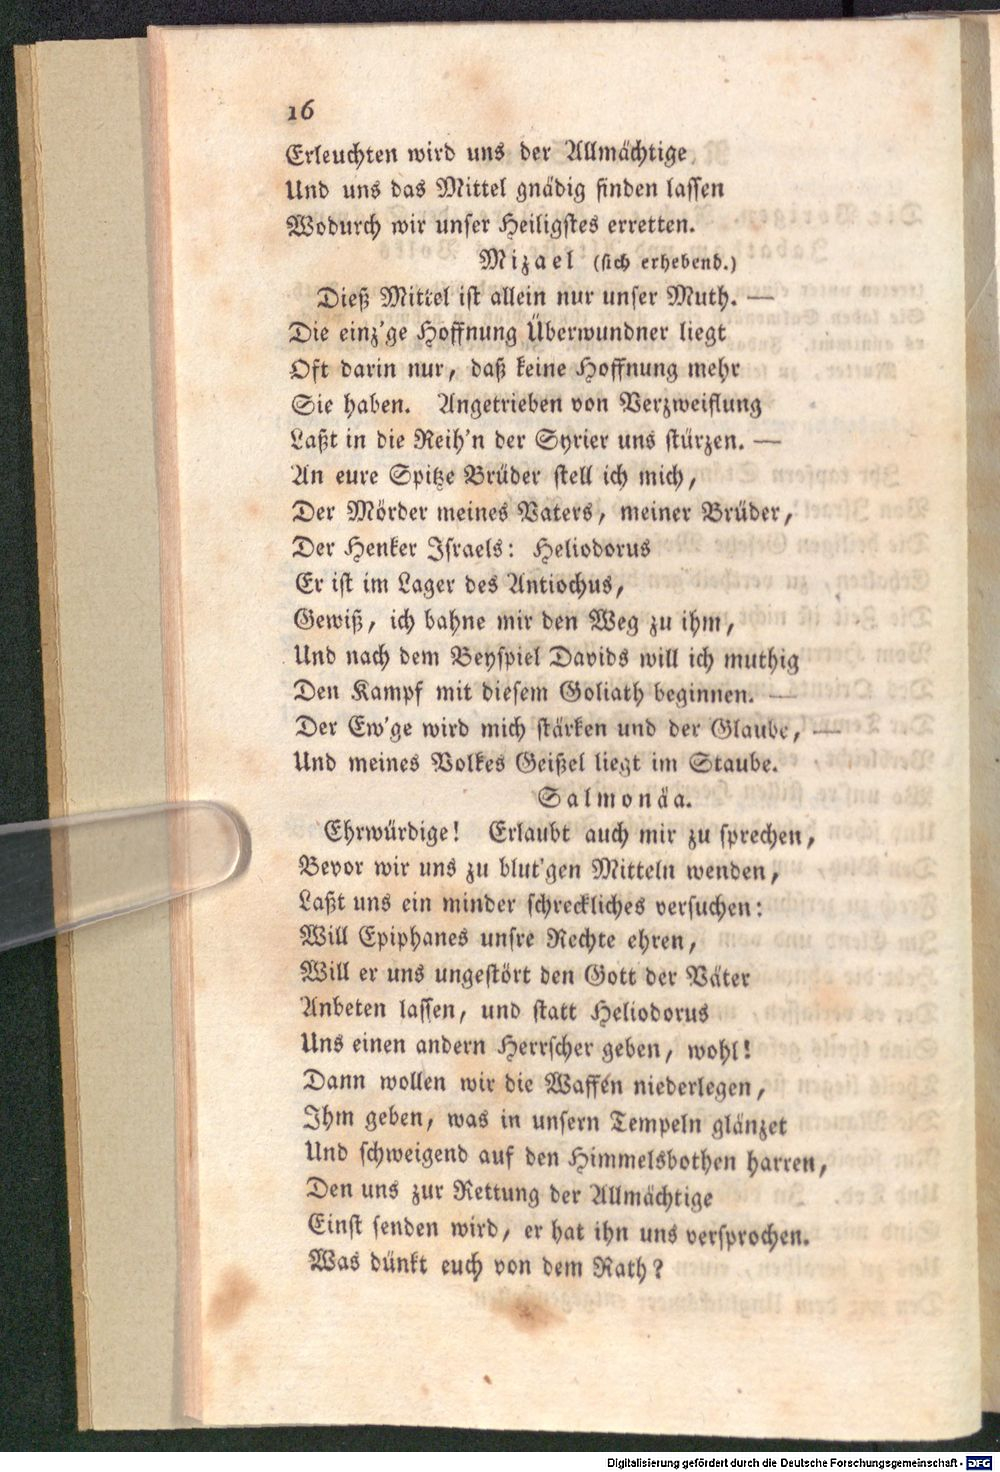 16
Erleuchten wird uns der Allmächtige
Und uns das Mittel gnädig finden lassen
Wodurch wir unser Heiligstes erretten.
Mizael (sich erhebend.)
Dieß Mittel ist allein nur unser Muth. —
Die einz'ge Hoffnung Überwundner liegt
Oft darin nur, daß keine Hoffnung mehr
Sie haben. Angetrieben von Verzweiflung
Laßt in die Reih'n der Syrier uns stürzen. —
An eure Spitze Brüder stell ich mich,
Der Mörder meines Vaters, meiner Brüder,
Der Henker Israels: Heliodorus
Er ist im Lager des Antiochus,
Gewiß, ich bahne mir den Weg zu ihm,
Und nach dem Beyspiel Davids will ich muthig
Den Kampf mit diesem Goliath beginnen. —
Der Ew'ge wird mich stärken und der Glaube, —
Und meines Volkes Geißel liegt im Staube.
Salmonäa.
Ehrwürdige! Erlaubt auch mir zu sprechen,
Bevor wir uns zu blut'gen Mitteln wenden,
Laßt uns ein minder schreckliches versuchen:
Will Epiphanes unsre Rechte ehren,
Will er uns ungestört den Gott der Väter
Anbeten lassen, und statt Heliodorus
Uns einen andern Herrscher geben, wohl!
Dann wollen wir die Waffen niederlegen,
Ihm geben, was in unsern Tempeln glänzet
Und schweigend auf den Himmelsbothen harren,
Den uns zur Rettung der Allmächtige
Einst senden wird, er hat ihn uns versprochen.
Was dünkt euch von dem Rath?
Digitalisierung gefördert durch die Deutsche Forschungsgemeinschaft - DFG